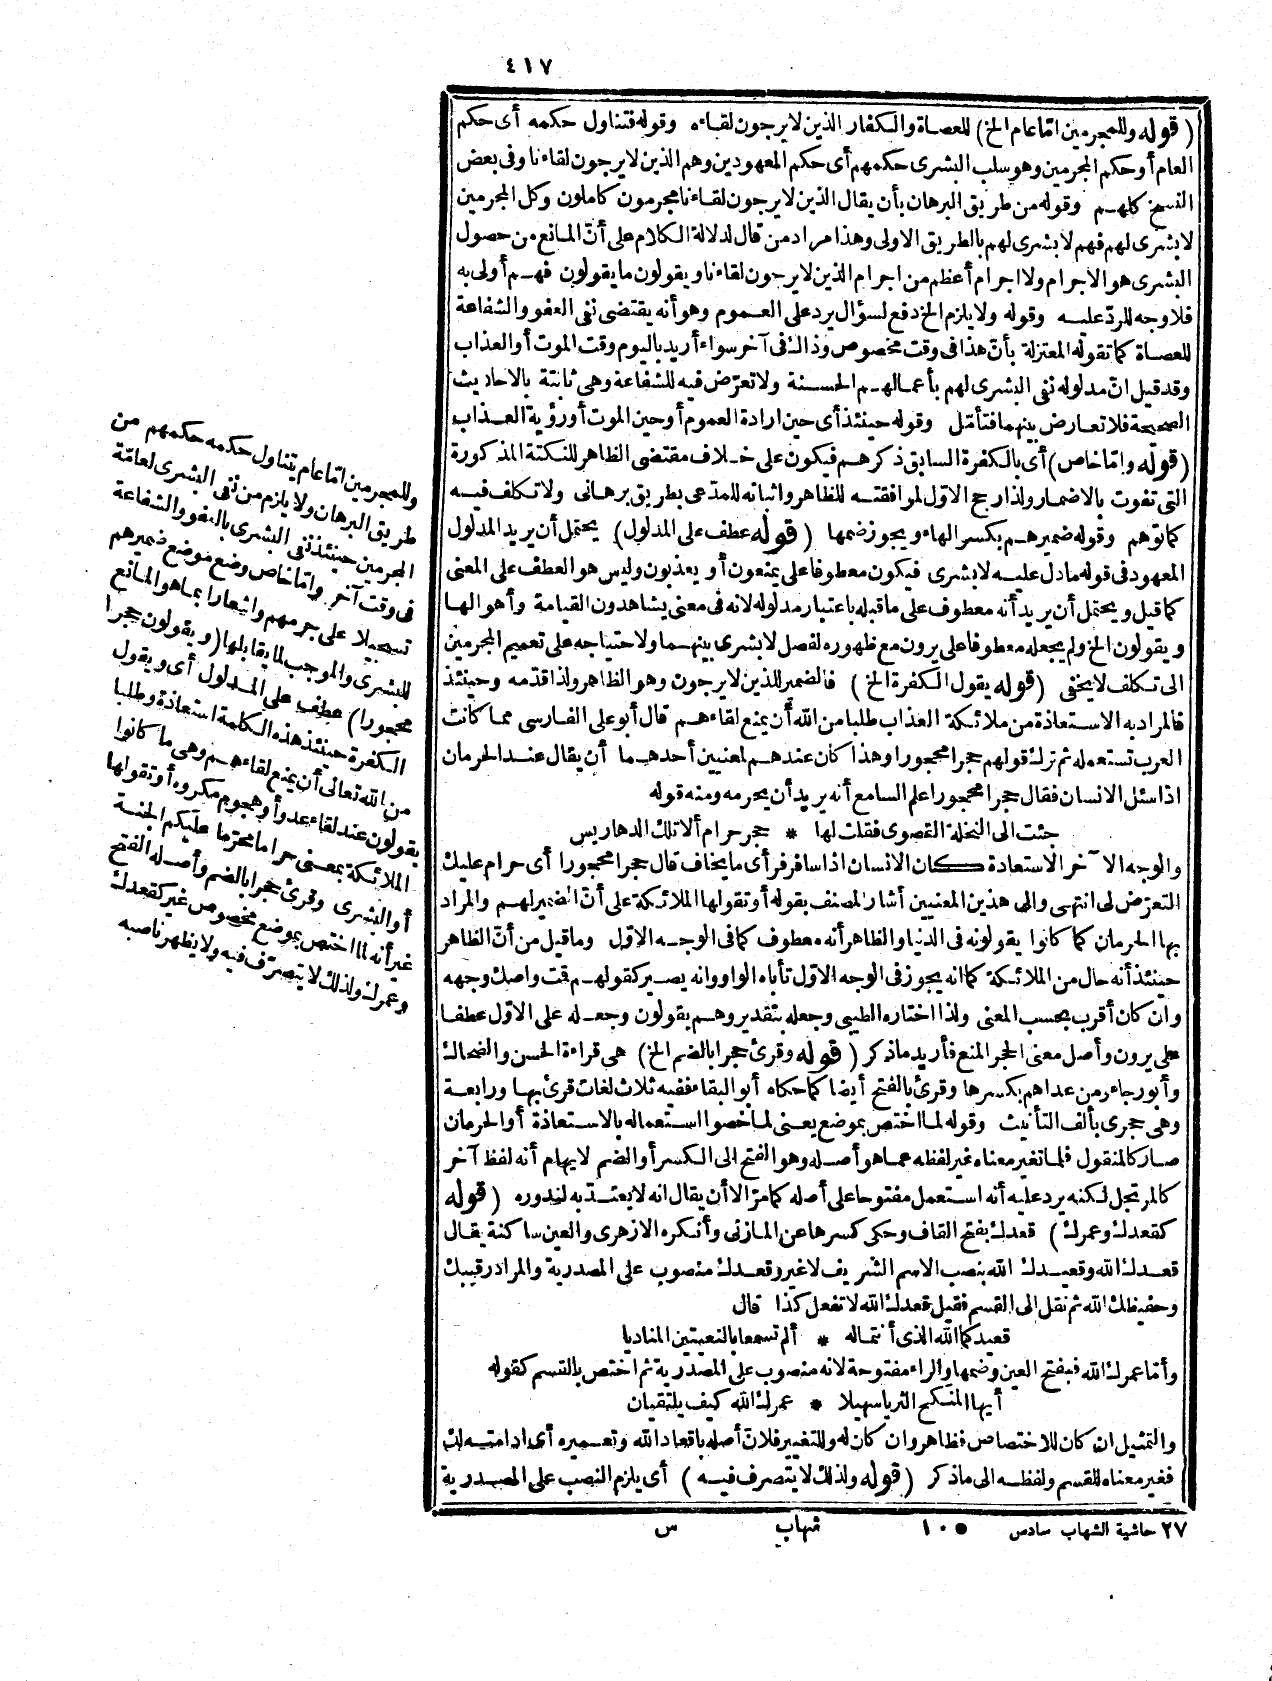 ٤١٧
(قوله وللمجرمين اتماعام الخ) للعصاة والكفار الذين لا يرجون لقاءه وقوله فتناول حكمه أى حكم
العام أو حكم المجرمين وهو سلب البشرى حكمهم أى حكم المعهودين وهم الذين لا يرجون لقاءنا وفى بعض
النسخ كلهم وقوله من طريق البرهان بأن يقال الذين لا يرجون لقاءنا مجرمون كاملون وكل المجرمين
لا بشرى لهم فهم لا بشرى لهم بالطريق الاولى وهذا مراد من قال لدلالة الكلام على أنّ المانع من حصول
البشرى هو الاجرام ولا اجرام أعظم من اجرام الذين لا يرجون لقاءنا ويقولون ما يقولون فهم أولى به
فلا وجه للردّ عليه وقوله ولا يلزم الخ دفع لسؤال يرد على العموم وهو أنه يقتضى نفى العفو والشفاعة
للعصاة كما تقوله المعتزلة بأنّ هذا فى وقت مخصوص وذاك فى آخر سواء أريد باليوم وقت الموت أو العذاب
وقد قيل انّ مدلوله نفى البشرى لهم بأعمالهم الحسنة ولا تعرّض فيه للشفاعة وهى ثابتة بالاحاديث
الصحيحة فلا تعارض بينهما فتأمّل وقوله حينئذ أى حين ارادة العموم أو حين الموت أو رؤية العذاب
(قوله وامّا خاص) أى بالكفرة السابق ذكرهم فيكون على خلاف مقتضى الظاهر للنكتة المذكورة
التى تفوت بالاضمار ولذا رجح الاوّل لموافقته للظاهر واثباته للمدّعى بطريق برهانى ولا تكلف فيه
كما توهم وقوله ضميرهم بكسر الهاء ويجوز ضمها (قوله عطف على المدلول) يحتمل أن يريد المدلول
المعهود فى قوله ما دل عليه لا بشرى فيكون معطوفا على يمنعون أو يعذبون وليس هو العطف على المعنى
كما قيل ويحتمل أن يريد أنه معطوف على ما قبله باعتبار مدلوله لانه فى معنى يشاهدون القيامة وأهوالها
ويقولون الخ ولم يجعله معطوفا على يرون مع ظهوره لفصل لا بشرى بينهما ولاحتياجه على تعميم المجرمين
الى تكلف لا يخفى (قوله يقول الكفرة الخ) فالضمير للذين لا يرجون وهو الظاهر ولذا قدّمه وحينئذ
فالمراد به الاستعاذة من ملائكة العذاب طلبا من الله أن يمنع لقاءهم قال أبو على الفارسى مما كانت
العرب تستعمله ثم ترك قولهم حجرا محجورا وهذا كان عندهم لمعنيين أحدهما أن يقال عند الحرمان
اذا سئل الانسان فقال حجرا محجورا علم السامع أنه يريد أن يحرمه ومنه قوله
جئت الى النخلة القصوى فقلت لها * حجر حرام ألا تلك الدهاريس
والوجه الآخر الاستعاذة كان الانسان اذا سافر فرأى ما يخاف قال حجرا محجورا أى حرام عليك
التعرّض لى انتهى والى هذين المعنيين أشار المصنف بقوله أو تقولها الملائكة على أنّ الضمير لهم والمراد
بها الحرمان كما كانوا يقولونه فى الدنيا والظاهر أنه معطوف كما فى الوجه الاوّل وما قيل من أنّ الظاهر
حينئذ أنه حال من الملائكة كما انه يجوز فى الوجه الاوّل تأباه الواو وانه يصير كقولهم قت واصك وجهه
وان كان أقرب بحسب المعنى ولذا اختاره الطيبى وجعله بتقدير وهم يقولون وجعله على الاوّل عطفا
على يرون وأصل معنى الحجر المنع فأريد ما ذكر (قوله وقرئ حجرا بالضم الخ) هى قراءة الحسن والضحاك
وأبو رجاء ومن عداهم بكسرها وقرئ بالفتح أيضا كما حكاه أبو البقاء ففيه ثلاث لغات قرئ بها ورابعة
وهى حجرى بألف التأنيث وقوله لما اختص بموضع يعنى لما خصوا استعماله بالاستعاذة أو الحرمان
صار كالمنقول فلما تغير معناه غير لفظه عما هو أصله وهو الفتح الى الكسر أو الضم لايهام أنه لفظ آخر
كالمرتجل لكنه يرد عليه أنه استعمل مفتوحا على أصله كما مرّ الا أن يقال انه لا يعتدّ به لندوره (قوله
كقعدك وعمرك) قعدك بفتح القاف وحكى كسرها عن المازنى وأنكره الازهرى والعين ساكنة يقال
قعدك الله وقعيدك الله بنصب الاسم الشريف لا غير وقعدك منصوب على المصدرية والمراد رقيبك
وحفيظك الله ثم نقل الى القسم فقيل قعدك الله لا تفعل كذا قال
قعيدكما الله الذى أنتما له * ألم تسمعا بالنعيتين المناديا
وأمّا عمرك الله فبفتح العين وضمها والراء مفتوحة لانه منصوب على المصدرية ثم اختص بالقسم كقوله
أيها المنكح الثريا سهيلا * عمرك الله كيف يلتقيان
والتمثيل ان كان للاختصاص فظاهر وان كان له وللتغيير فلانّ أصله باقعاد الله وتعميره أى ادامته لك
فغير معناه للقسم ولفظه الى ما ذكر (قوله ولذلك لا يتصرف فيه) أى يلزم النصب على المصدرية
٢٧ حاشية الشهاب سادس ١٠٥ شهاب س
وللمجرمين امّا عام يتناول حكمه حكمهم من
طريق البرهان ولا يلزم من نفى البشرى لعامّة
المجرمين حينئذ نفى البشرى بالعفو والشفاعة
فى وقت آخر وامّا خاص وضع موضع ضميرهم
تسجيلا على جرمهم واشعارا بما هو المانع
للبشرى والموجب لما يقابلها (ويقولون حجرا
محجورا) عطف على المدلول أى ويقول
الكفرة حينئذ هذه الكلمة استعاذة وطلبا
من الله تعالى أن يمنع لقاءهم وهى ما كانوا
يقولون عند لقاء عدوّ أو هجوم مكروه أو تقولها
الملائكة بمعنى حراما محرّما عليكم الجنة
أو البشرى وقرئ حجرا بالضم وأصله الفتح
غير أنه لما اختص بموضع مخصوص غير كقعدك
وعمرك ولذلك لا يتصرّف فيه ولا يظهر ناصبه